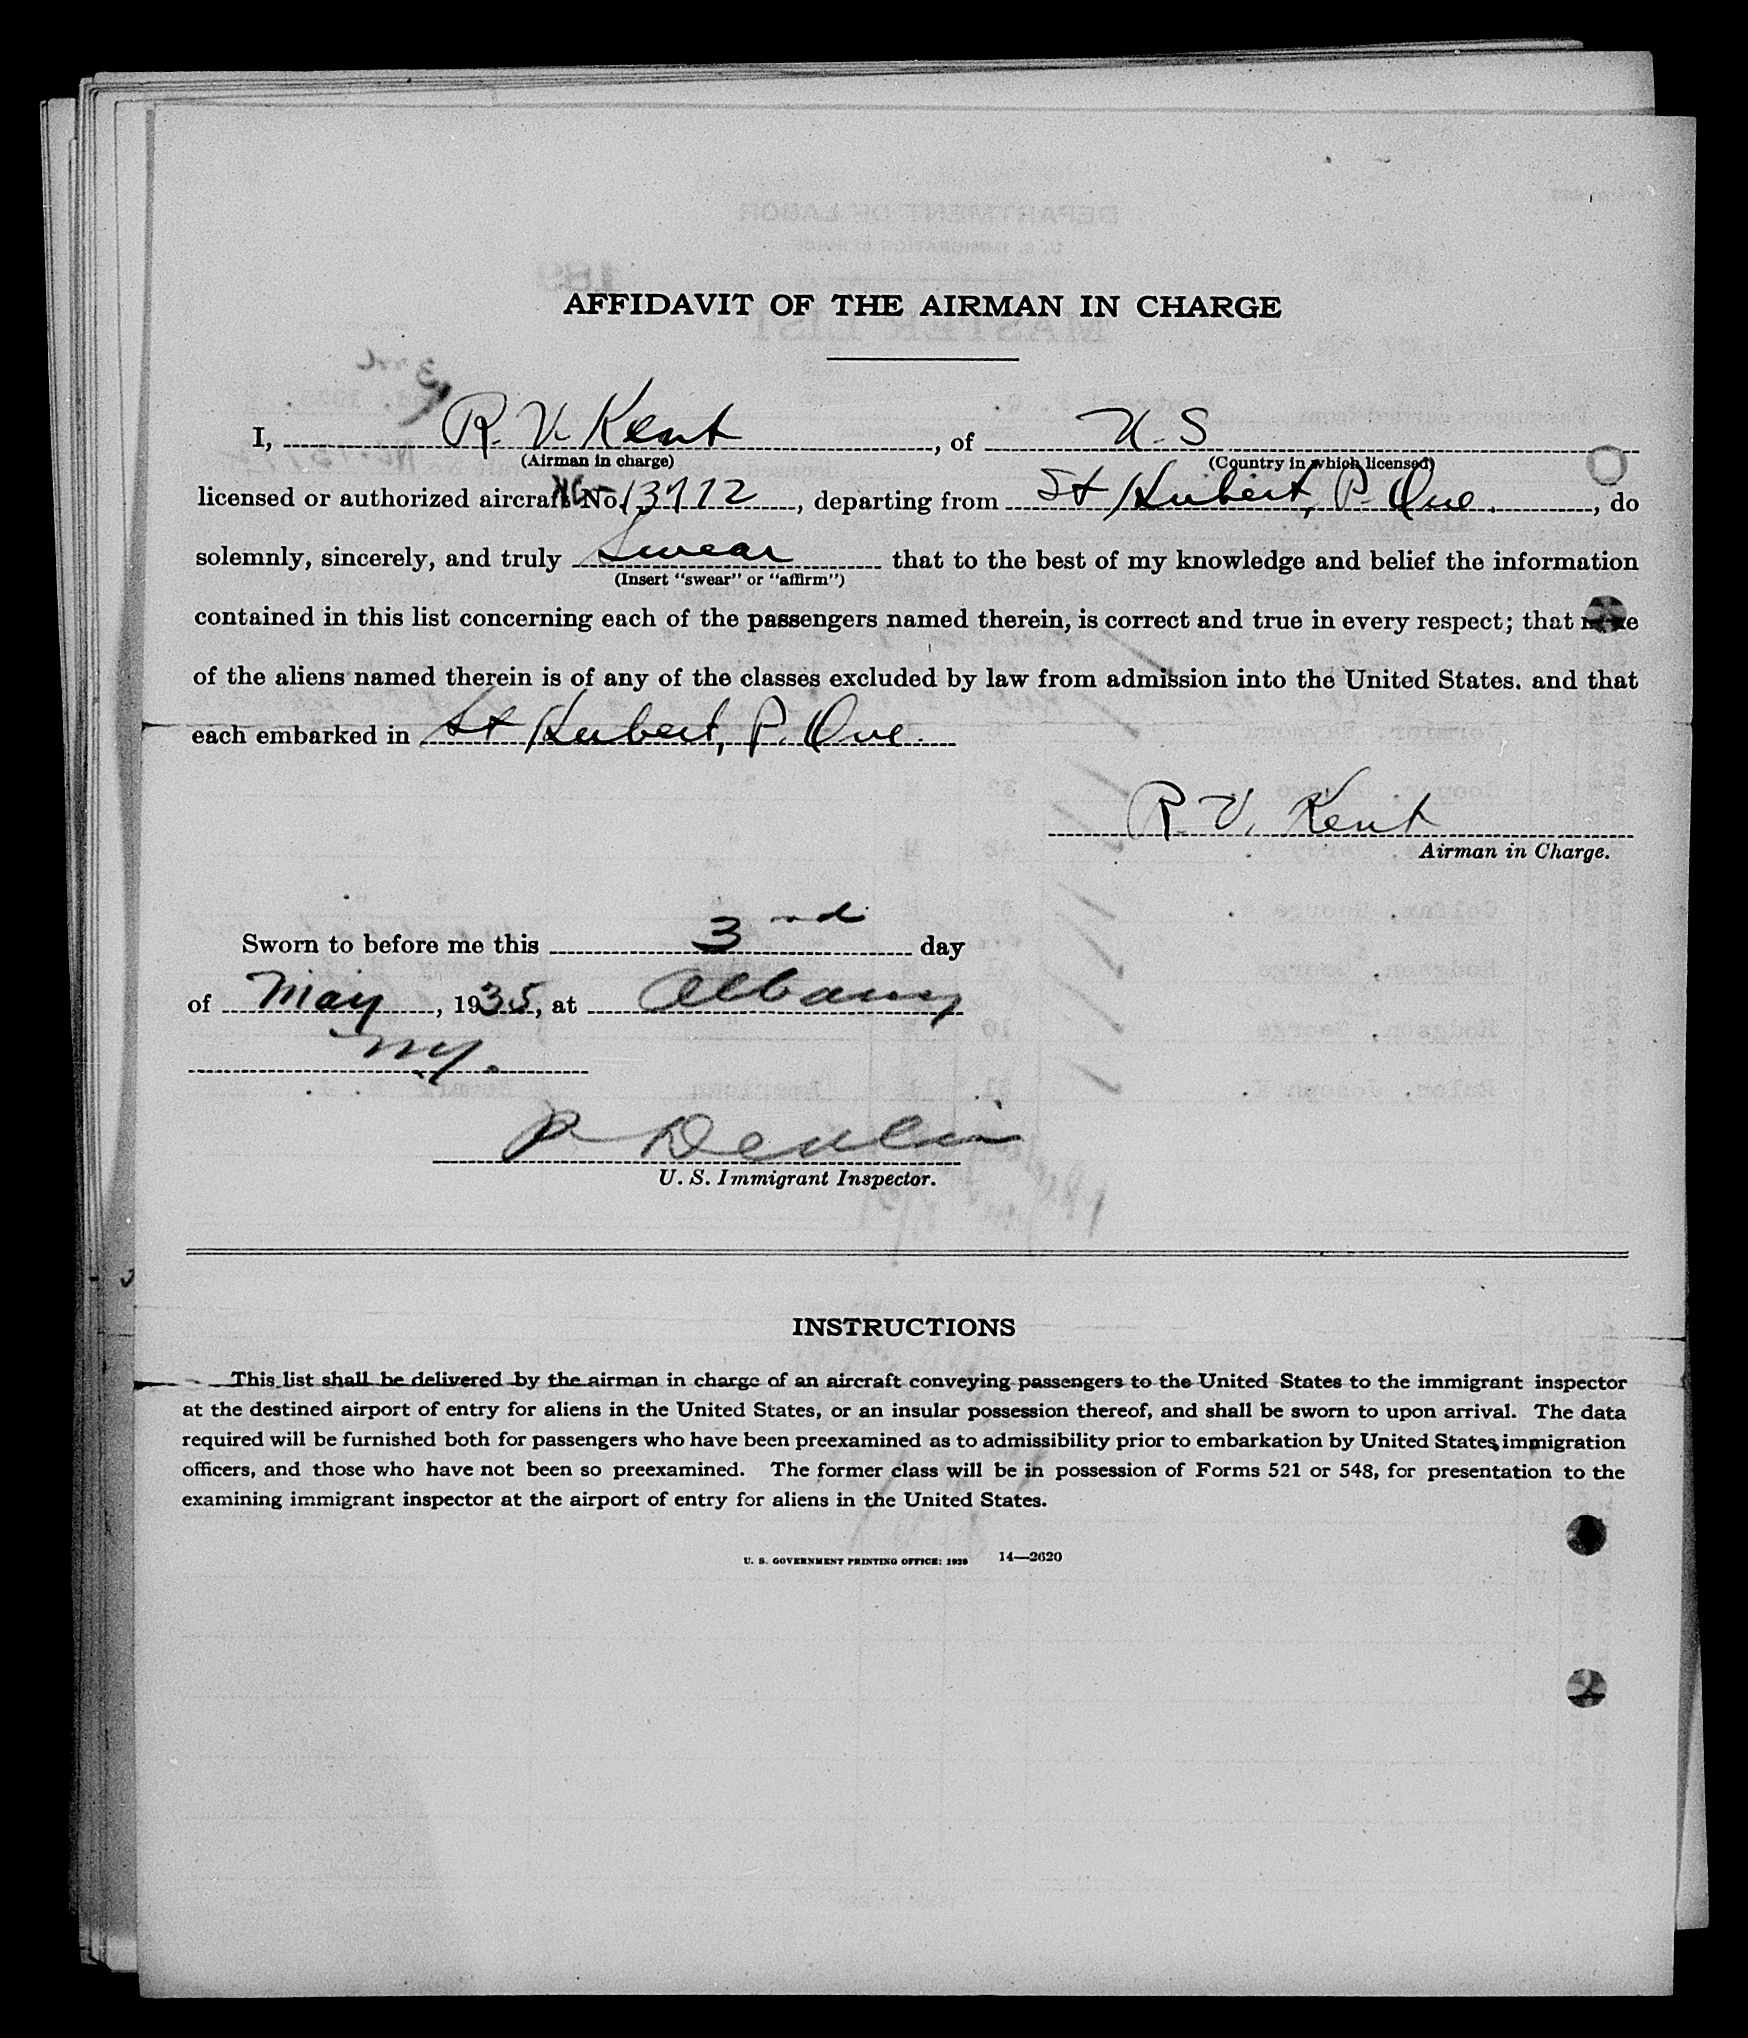 AFFIDAVIT OF THE AIRMAN IN CHARGE
I, R. V. Kent, of U. S
(Airman in charge) (Country in which licensed)
licensed or authorized aircraft No. NC-13712, departing from St Hubert, P. Que., do
solemnly, sincerely, and truly Swear that to the best of my knowledge and belief the information
(Insert "swear" or "affirm")
contained in this list concerning each of the passengers named therein, is correct and true in every respect; that none
of the aliens named therein is of any of the classes excluded by law from admission into the United States, and that
each embarked in St Hubert, P. Que.
R. V. Kent
Airman in Charge.
Sworn to before me this 3rd day
of May, 1935, at Albany
NY.
P Devlin
U. S. Immigrant Inspector.
INSTRUCTIONS
This list shall be delivered by the airman in charge of an aircraft conveying passengers to the United States to the immigrant inspector
at the destined airport of entry for aliens in the United States, or an insular possession thereof, and shall be sworn to upon arrival. The data
required will be furnished both for passengers who have been preexamined as to admissibility prior to embarkation by United States immigration
officers, and those who have not been so preexamined. The former class will be in possession of Forms 521 or 548, for presentation to the
examining immigrant inspector at the airport of entry for aliens in the United States.
U. S. GOVERNMENT PRINTING OFFICE: 1929 14—2620